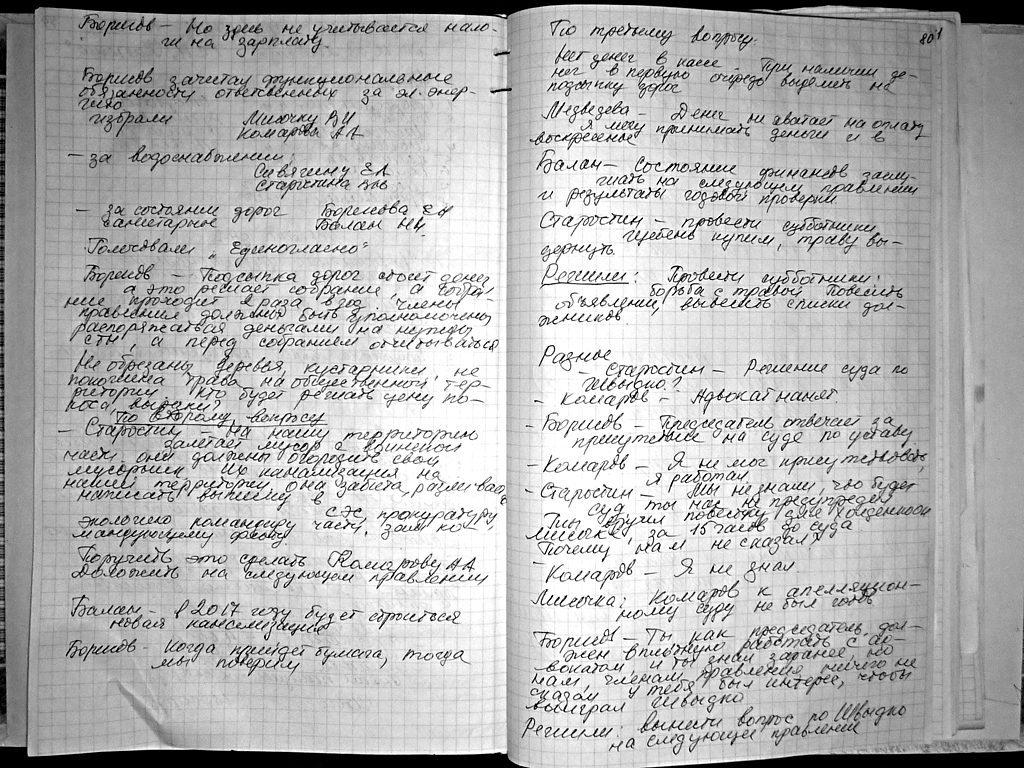 Борисов – Но здесь не учитывается нало-
ги на зарплату.
Борисов зачитал функциональные
обязанности ответственных за эл. энер-
гию
избрали Лисочку ВИ
Комарова АА
– за водоснабжении,
Савягину ЕА
Старостина
– за состояние дорог Борисова ЕН
санитарное Балан НЦ
Голосовали „Единогласно"
Борисов – Подсыпка дорог стоит денег
а это решает собрание, а собра-
ние проходит 2 раза в год, члены
правления должны быть уполномочены
распоряжаться деньгами на нужды
СТ, а перед собранием отчитываться
Не обрезаны деревья, кустарники, не
покошена трава на общественной тер-
ритории. Кто будет решать цену по-
коса
По второму вопросу
– Старостин – на нашу территорию
залетает мусор с воинской
части, они должны огородить свой
мусорник. Их канализация на
нашей территории, она забита, разлив вод
написать в СЭС, прокуратуру,
экологию командиру части, зам ко-
мандующему флота
Поручить это сделать Комарову АА
Доложить на следующем правлении
Балан – В 2017 году будет строится
новая канализация
Борисов – Когда приедет бумага, тогда
мы поверим
80
По третьему вопросу.
Нет денег в кассе. При наличии де-
нег в первую очередь выделить на
подсыпку дорог
Медведева – Денег не хватает на оплату
Я могу принимать деньги и в
воскресенье
Балан – Состояние финансов заслу-
шать на следующем правлении
и результаты годовой проверки
Старостин – провести субботники
щебень купим, траву вы-
дернуть.
Решили: Провести субботники:
борьба с травой повесить
объявлении, вывесить списки дол-
жников
Разное
– Старостин – Решение суда по
Швыдко?
– Комаров – Адвокат нанят
– Борисов – Председатель отвечает за
присутствие на суде по уставу
– Комаров – Я не мог присутствовать,
я работал
– Старостин – Мы не знали, что будет
суд, ты нас не предупредил
Ты вручил повестку
Лисочке, за 15 часов до суда
Почему нам не сказал?
– Комаров – Я не знал
Лисочка: Комаров к апелляцион-
ному суду не был готов
Борисов – Ты как председатель дол-
жен вплотную работать с ад-
вокатом и ты знал заранее но
нам членам правления ничего не
сказал у тебя был интерес, чтобы
выиграл Швыдко
Решили: вынести вопрос по Швыдко
на следующее правлении